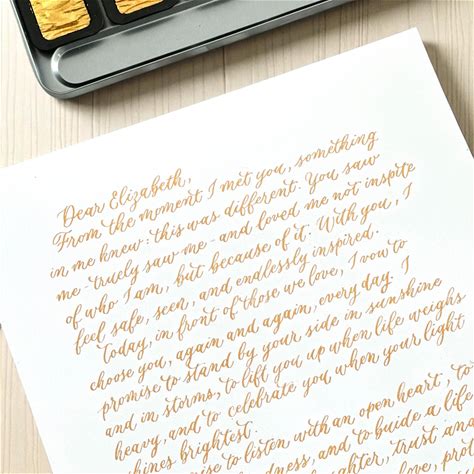 Dear Elizabeth,
From the moment I met you, something
in me knew: this was different. You saw
me - truely saw me - and loved me not inspite
of who I am, but because of it. With you, I
feel safe, seen, and endlessly inspired.
Today, in front of those we love, I vow to
choose you, again and again, every day. I
promise to stand by your side in sunshine
and in storms, to lift you up when life weighs
heavy, and to celebrate you when your light
shines brightest.
promise to listen with an open heart, to
kindness, and to buide a life
laughter, trust and
love,